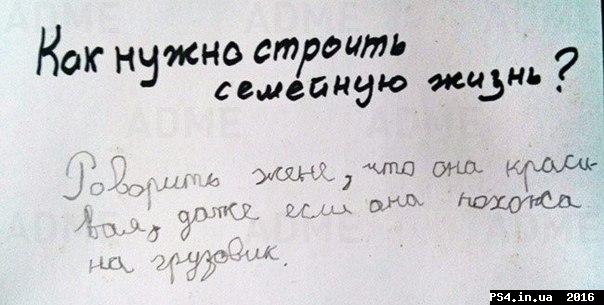 Как нужно строить
семейную жизнь?
Говорить жене, что она краси-
вая, даже если она похожа
на грузовик.
ADME
ADME
ADME
ADME
ADME
ADME
PS4.in.ua 2016